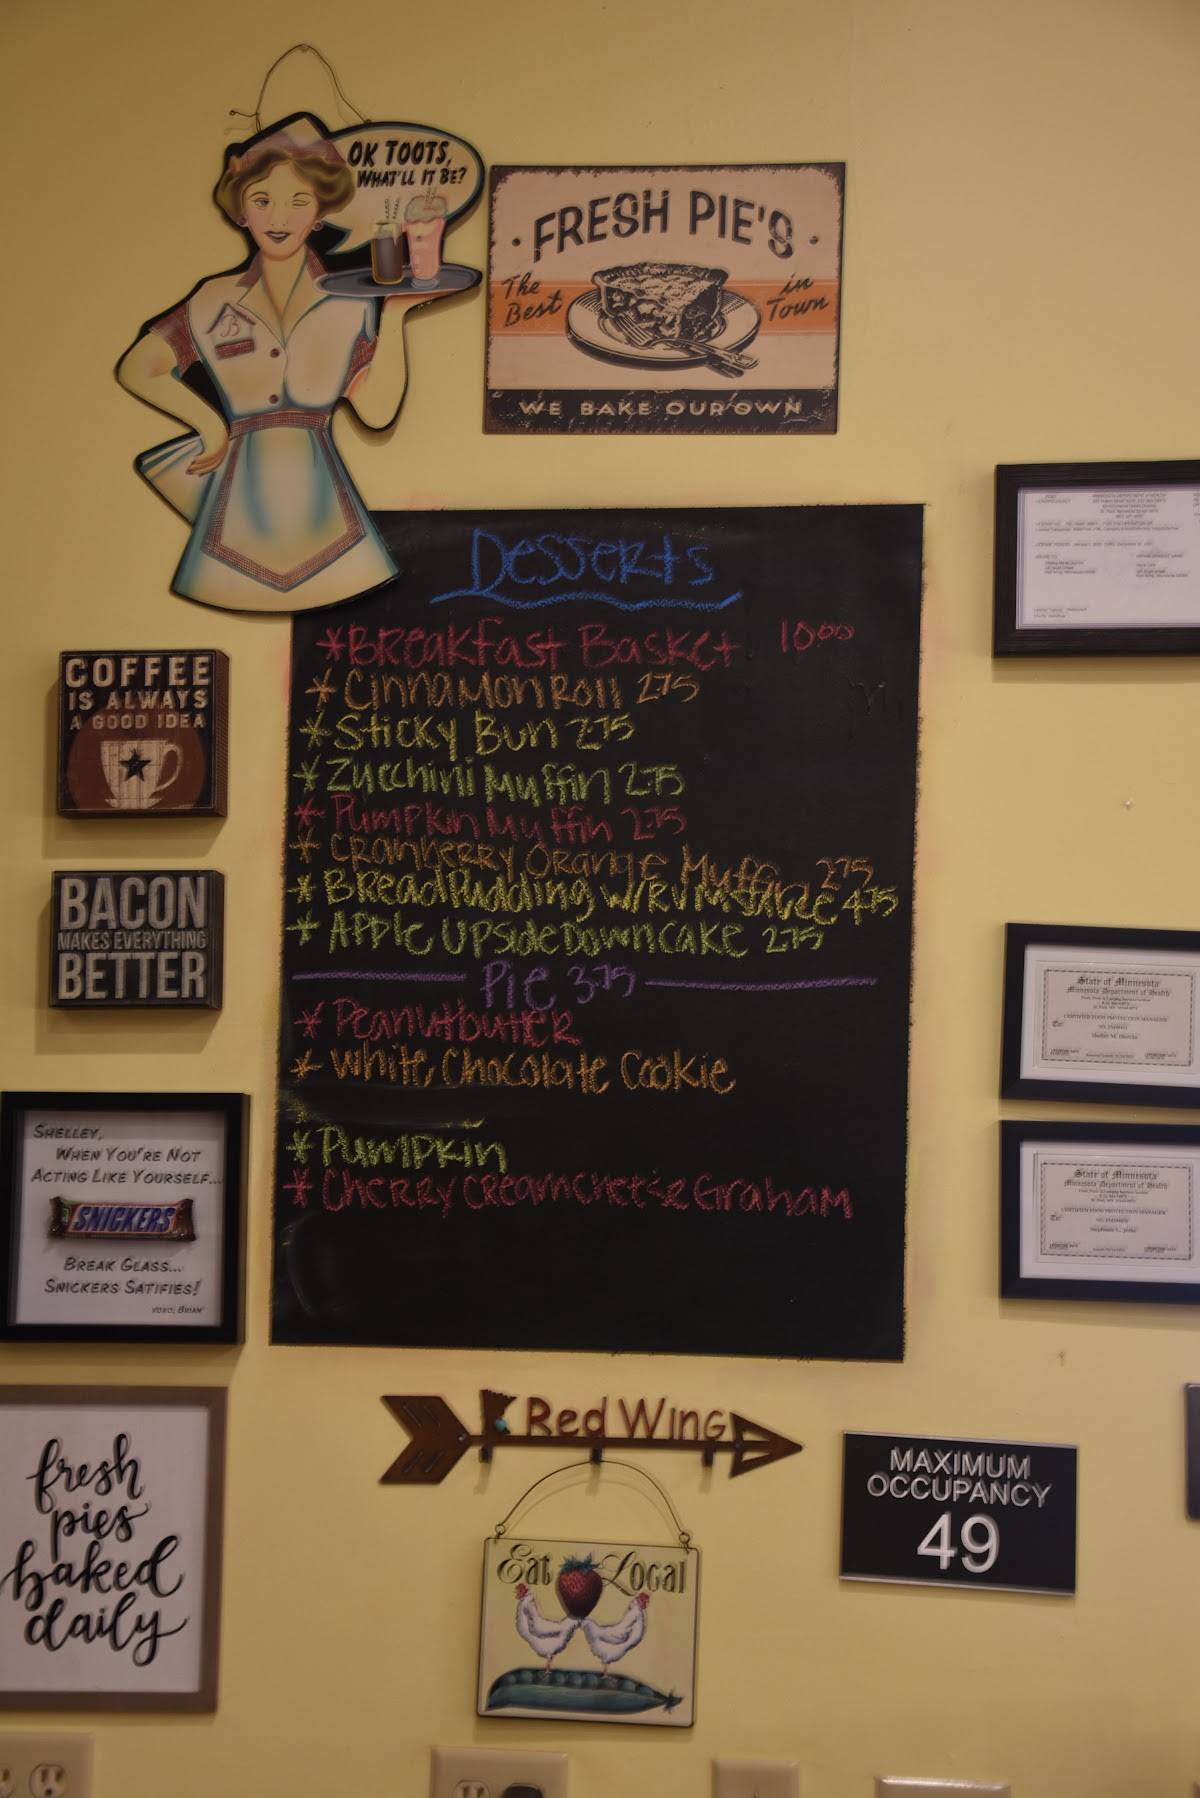 OK TOOTS,
WHAT'LL IT BE?
B
FRESH PIE'S
The Best
in Town
WE BAKE OUR OWN
Desserts
*Breakfast Basket 10.00
*Cinnamon Roll 2.75
*Sticky Bun 2.75
*Zucchini Muffin 2.75
*Pumpkin Muffin 2.75
*Cranberry Orange Muffin 2.75
*Bread Pudding w/Rum Sauce 4.75
*Apple Upside Down Cake 2.75
Pie 3.75
*Peanutbutter
*White Chocolate Cookie
*Pumpkin
*Cherry, Creamchee
Graham
COFFEE
IS ALWAYS
A GOOD IDEA
BACON
MAKES EVERYTHING
BETTER
SHELLEY,
WHEN YOU'RE NOT
ACTING LIKE YOURSELF...
SNICKERS
BREAK GLASS...
SNICKERS SATIFIES!
XOXO, BRIAN
fresh
pies
baked
daily
State of Minnesota
Minnesota Department of Health
CERTIFIED FOOD PROTECTION MANAGER
To:
State of Minnesota
Minnesota Department of Health
CERTIFIED FOOD PROTECTION MANAGER
To:
Red Wing
Eat Local
MAXIMUM
OCCUPANCY
49